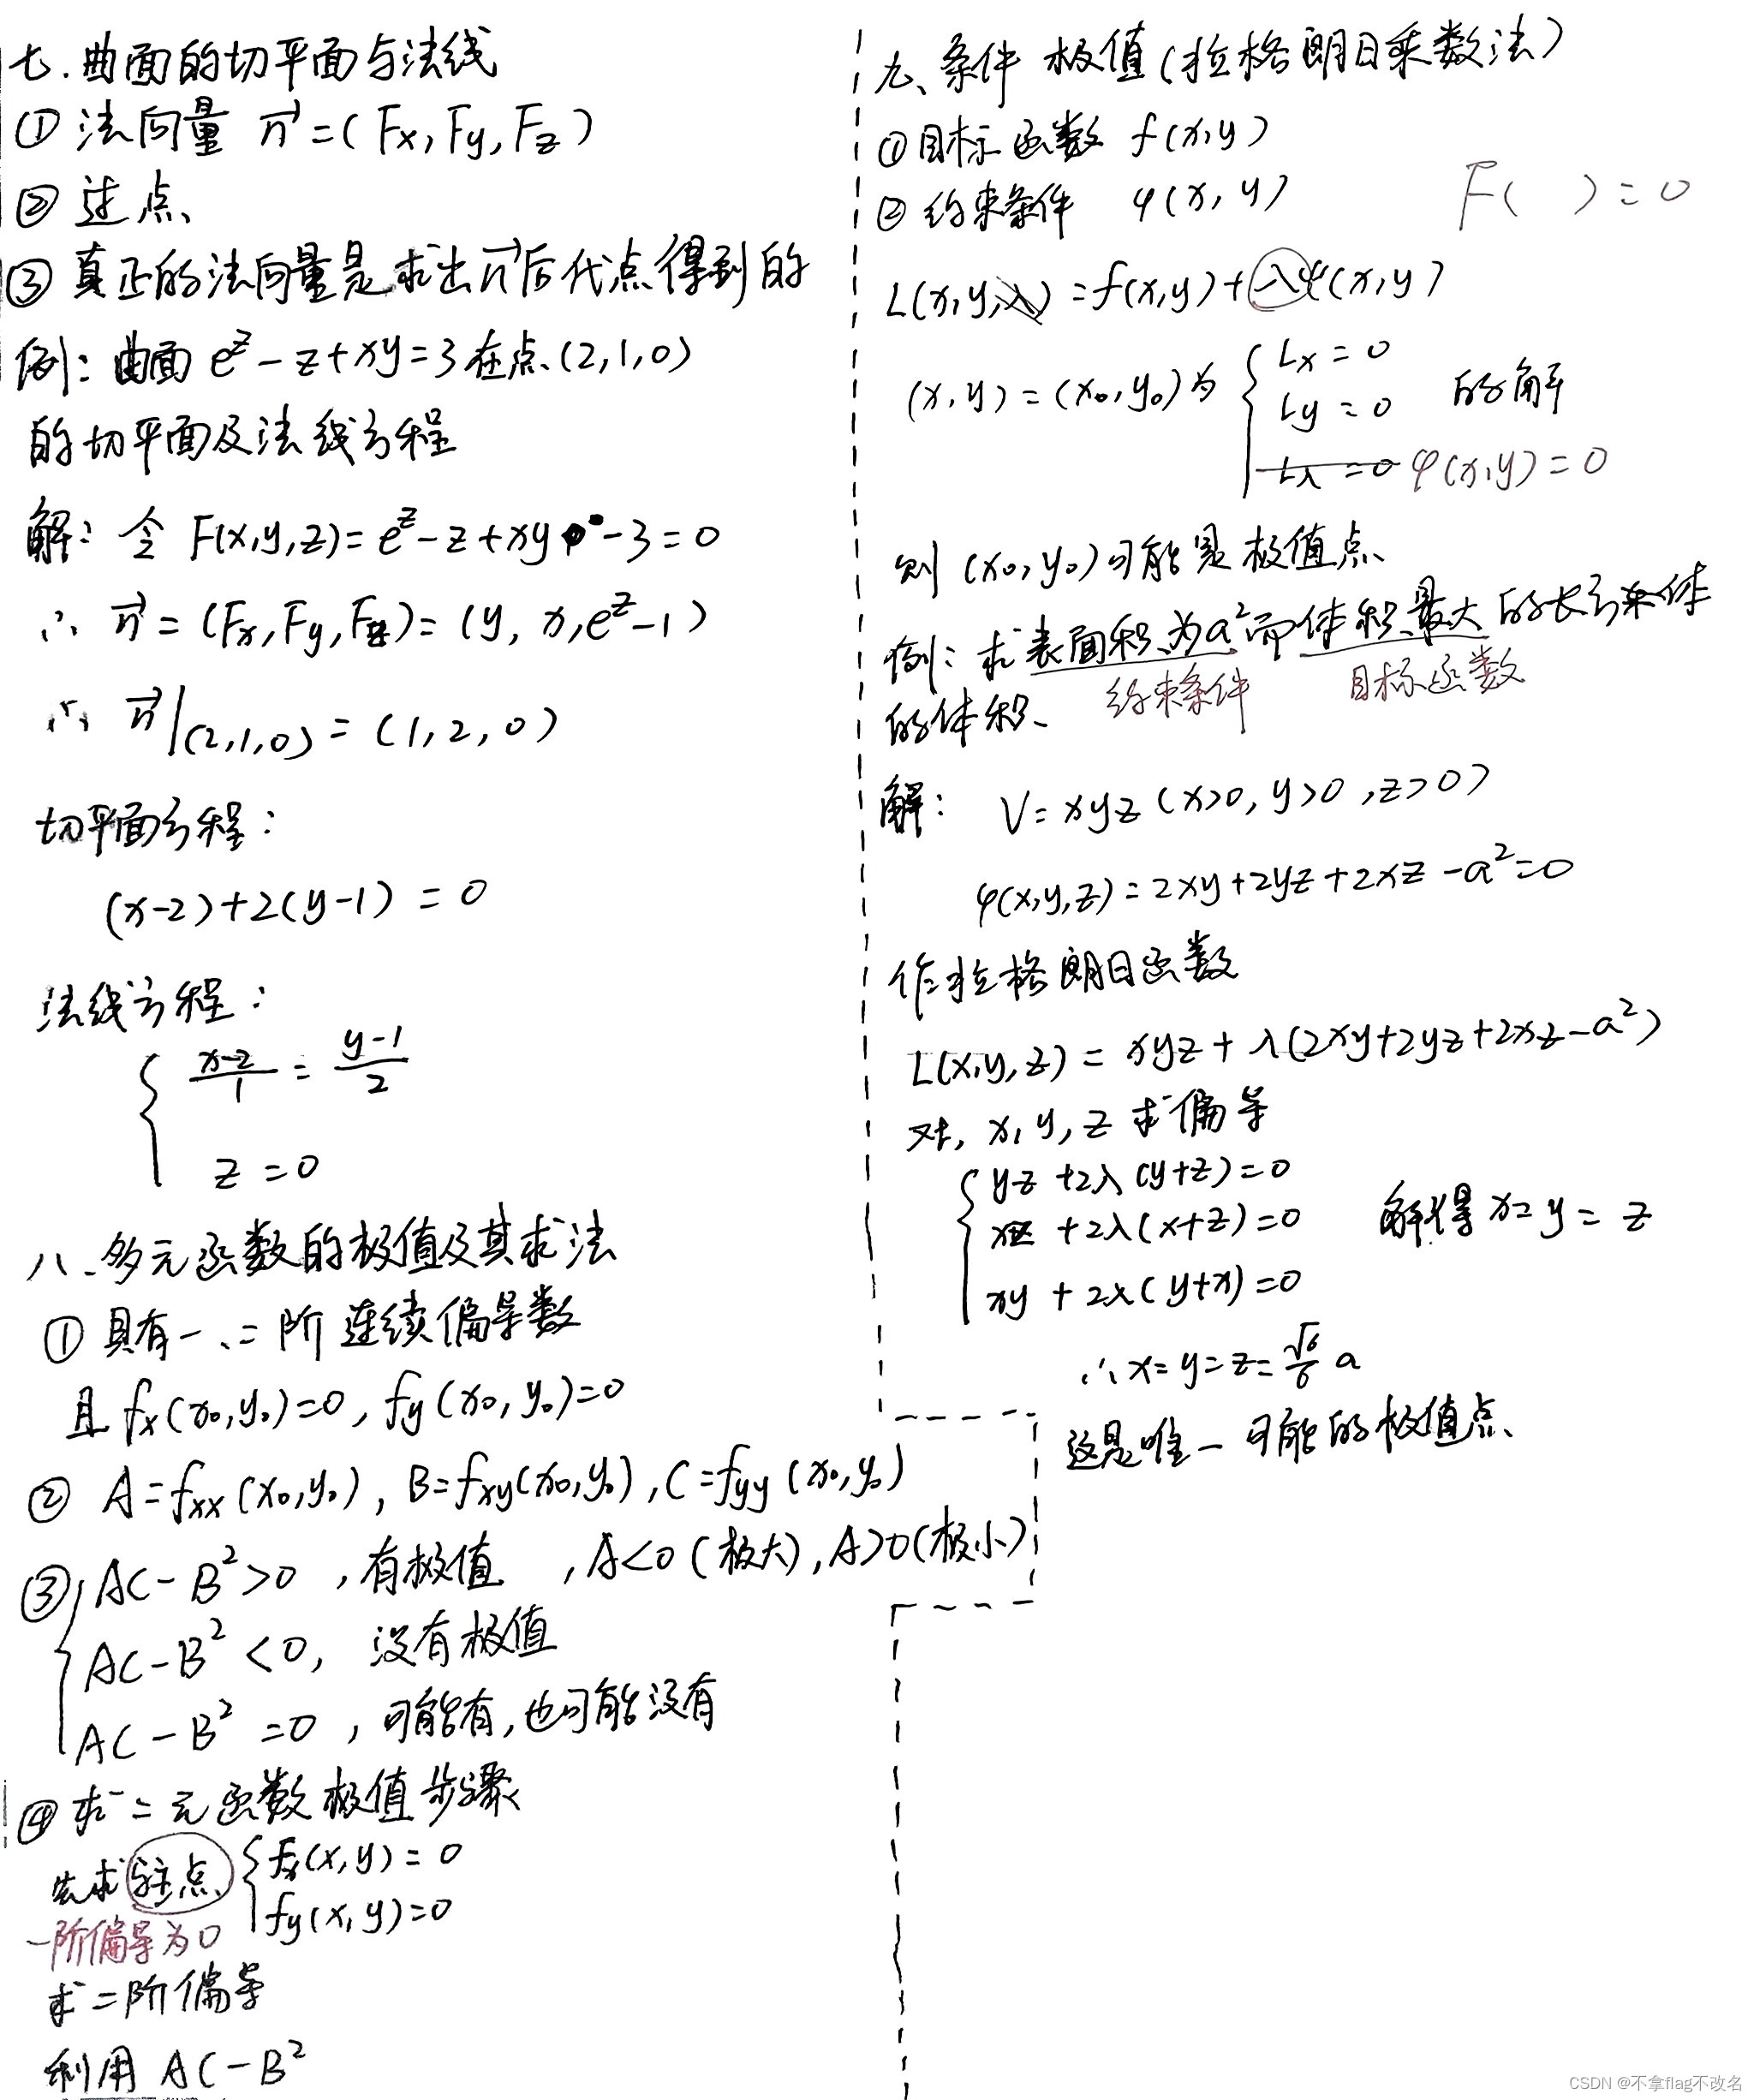 七.曲面的切平面与法线
① 法向量 n⃗=(Fx,Fy,Fz)
② 过点
③ 真正的法向量是求出n⃗后代点得到的
例: 曲面 e^z-z+xy=3 在点(2,1,0)
的切平面及法线方程
解: 令 F(x,y,z)=e^z-z+xy-3=0
∴ n⃗=(Fx,Fy,Fz)=(y, x, e^z-1)
∴ n⃗|(2,1,0)=(1,2,0)
切平面方程:
(x-2)+2(y-1)=0
法线方程:
{ (x-2)/1 = (y-1)/2
z=0
八.多元函数的极值及其求法
① 具有一、二阶连续偏导数
且 fx(x₀,y₀)=0, fy(x₀,y₀)=0
② A=fxx(x₀,y₀), B=fxy(x₀,y₀), C=fyy(x₀,y₀)
③ { AC-B²>0 , 有极值 , A<0(极大), A>0(极小)
AC-B²<0, 没有极值
AC-B²=0, 可能有,也可能没有
④ 求二元函数极值步骤
先求驻点 { fx(x,y)=0
fy(x,y)=0
一阶偏导为0
求二阶偏导
利用 AC-B²
九、条件极值(拉格朗日乘数法)
① 目标函数 f(x,y)
② 约束条件 φ(x,y) F( )=0
L(x,y,λ)=f(x,y)+λφ(x,y)
(x,y)=(x₀,y₀)为 { Lx=0
Ly=0 的解
Lλ=0 φ(x,y)=0
则(x₀,y₀)可能是极值点
例: 求表面积为a²而体积最大的长方体
约束条件 目标函数
的体积
解: V=xyz (x>0, y>0, z>0)
φ(x,y,z)=2xy+2yz+2xz-a²=0
作拉格朗日函数
L(x,y,z)=xyz+λ(2xy+2yz+2xz-a²)
对, x,y,z 求偏导
{ yz+2λ(y+z)=0
xz+2λ(x+z)=0 解得 x=y=z
xy+2λ(y+x)=0
∴x=y=z=√6/6 a
这是唯一可能的极值点
CSDN @不拿flag不改名